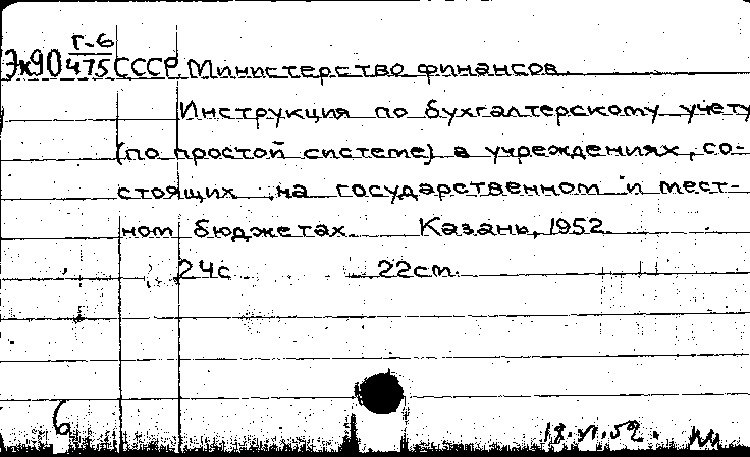 Г-6
Эк90 475 СССР. Министерство финансов.
Инструкция по бухгалтерскому учету
(по простой системе) в учреждениях, со-
стоящих на государственном и мест-
ном бюджетах. Казань, 1952.
24с 22cm.
6
12.VI.52.